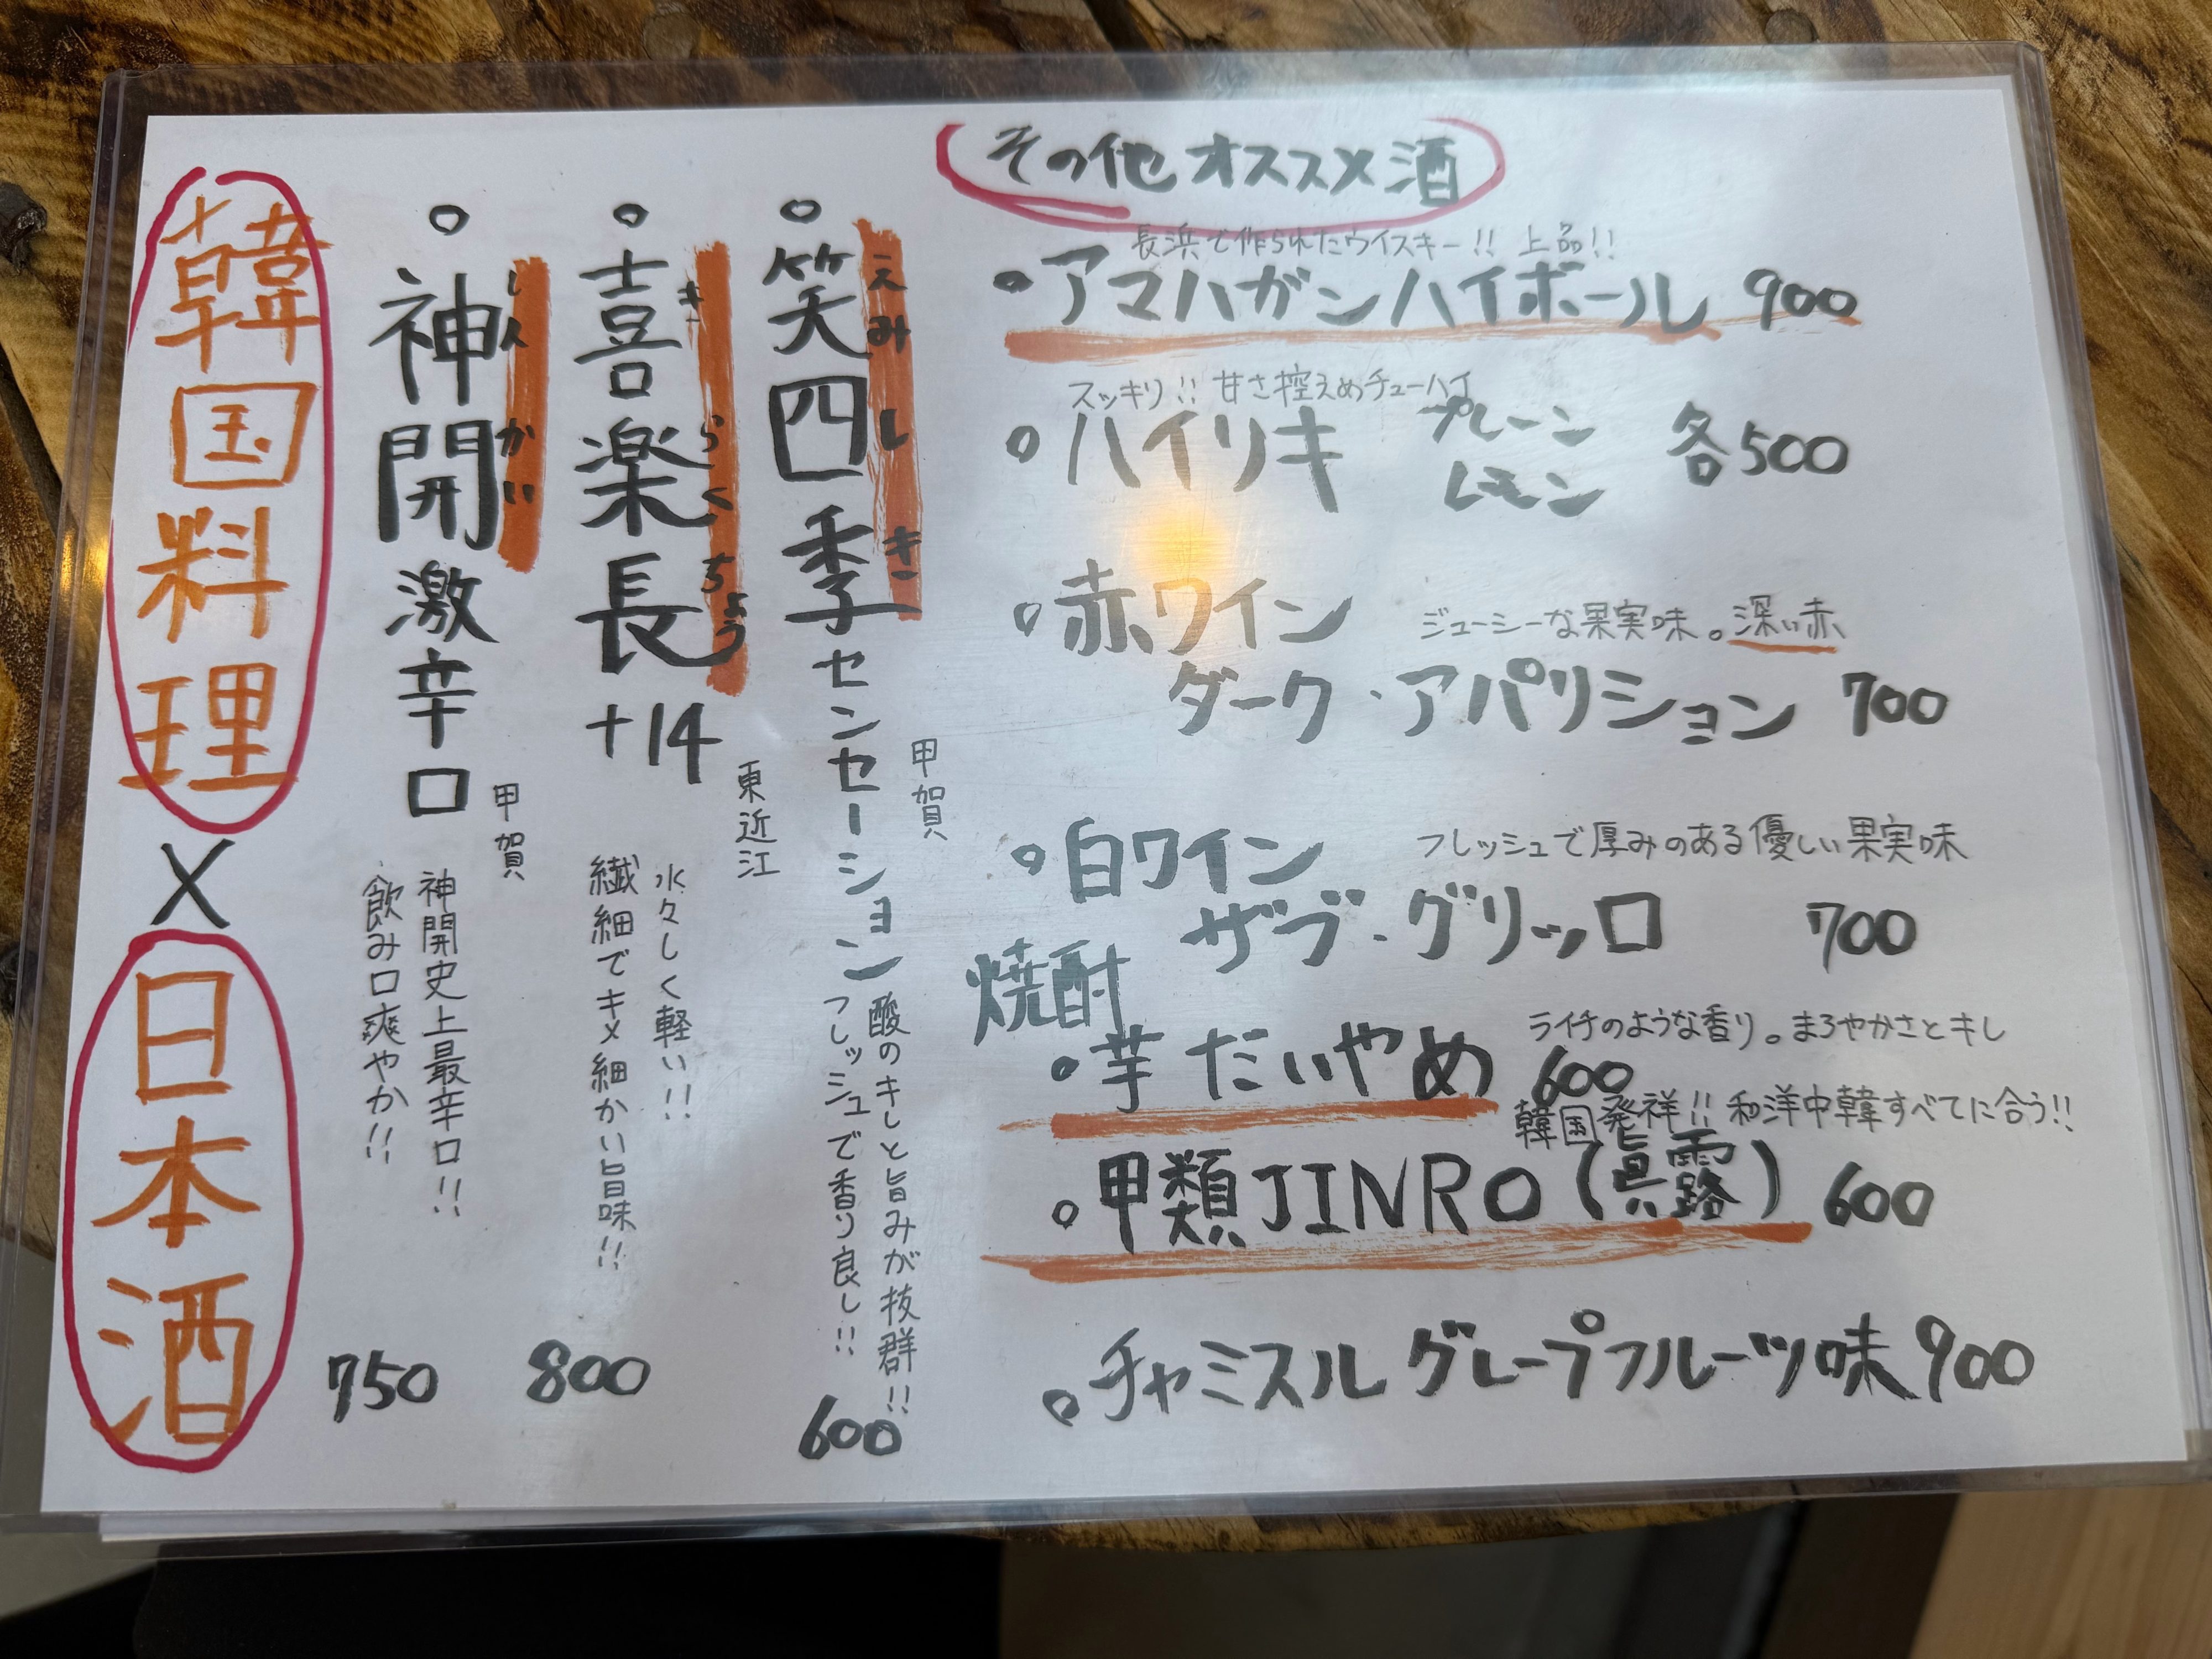 韓国料理
×
日本酒
その他オススメ酒
笑四季センセーション
えみしき
甲賀
酸のキレと旨みが抜群!!
フレッシュで香り良し!!
600
喜楽長+14
きらくちょう
東近江
水々しく軽い!!
繊細でキメ細かい旨味!!
800
神開激辛口
しんかい
甲賀
神開史上最辛口!!
飲み口爽やか!!
750
長浜で作られたウイスキー!! 上品!!
アマハガンハイボール 900
スッキリ!! 甘さ控えめチューハイ
ハイリキ プレーン
レモン 各500
赤ワイン ジューシーな果実味。深い赤
ダーク・アパリション 700
白ワイン フレッシュで厚みのある優しい果実味
ザブ・グリッロ 700
焼酎
ライチのような香り。まろやかさとキレ
芋 だいやめ 600
韓国発祥!! 和洋中韓すべてに合う!!
甲類JINRO(眞露) 600
チャミスル グレープフルーツ味 900